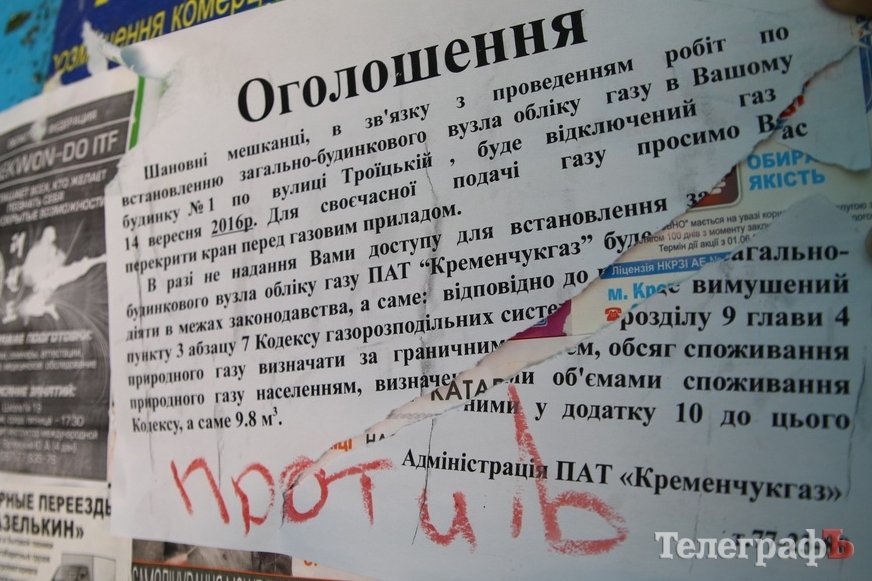 Оголошення
Шановні мешканці, в зв'язку з проведенням робіт по
встановленню загально-будинкового вузла обліку газу в Вашому
будинку №1 по вулиці Троїцькій , буде відключений газ
14 вересня 2016р. Для своєчасної подачі газу просимо Вас
перекрити кран перед газовим приладом.
В разі не надання Вами доступу для встановлення загально-
будинкового вузла обліку газу ПАТ “Кременчукгаз” буде вимушений
діяти в межах законодавства, а саме: відповідно до розділу 9 глави 4
пункту 3 абзацу 7 Кодексу газорозподільних систем, обсяг споживання
природного газу визначати за граничними об'ємами споживання
природного газу населенням, визначеними у додатку 10 до цього
Кодексу, а саме 9.8 м³.
Адміністрація ПАТ «Кременчукгаз»
протиЬ
ОБИРА
ЯКІСТЬ
100 днів з моменту
Термін дії акції з 01.06
Ліцензія НКРЗІ АЕ №
м. Кре
КАТАЛ
KWON-DO ITF
РНЫЕ ПЕРЕЕЗДЫ
АЗЕЛЬКИН»
ТелеграфЪ